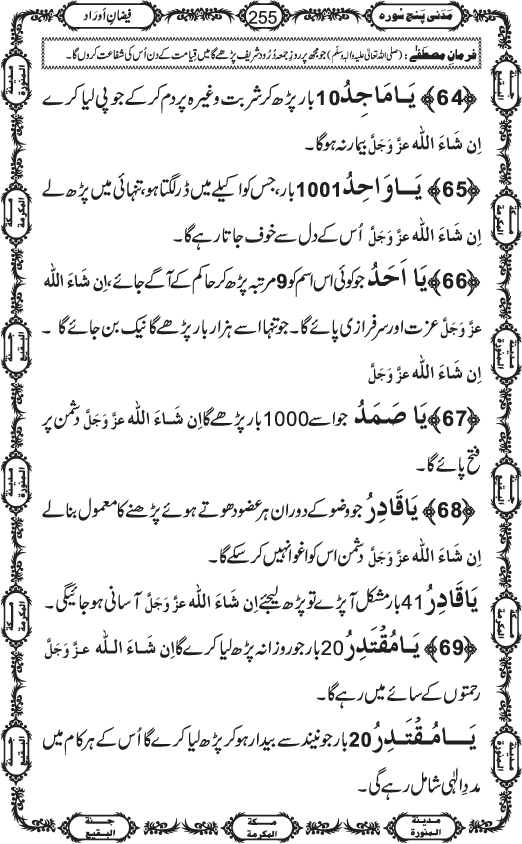 مَدَنی پنج سُورہ 255 فیضانِ اَوراد
فرمانِ مصطفٰے : (صلی اللہ تعالیٰ علیہ والہٖ وسلم) جو مجھ پر روزِ جمعہ دُرُود شریف پڑھے گا میں قیامت کے دن اُس کی شفاعت کروں گا۔
﴿64﴾ یَا مَاجِدُ 10 بار پڑھ کر شربت وغیرہ پر دم کر کے جو پی لیا کرے
اِن شَاءَ اللہ عزَّ وَجَلَّ بیمار نہ ہو گا۔
﴿65﴾ یَا وَاحِدُ 1001 بار، جس کو اکیلے میں ڈر لگتا ہو، تنہائی میں پڑھ لے
اِن شَاءَ اللہ عزَّ وَجَلَّ اُس کے دل سے خوف جاتا رہے گا۔
﴿66﴾ یَا اَحَدُ جو کوئی اس اسم کو 9 مرتبہ پڑھ کر حاکم کے آگے جائے، اِن شَاءَ اللہ
عزَّ وَجَلَّ عزت اور سرفرازی پائے گا۔ جو تنہا اسے ہزار بار پڑھے گا نیک بن جائے گا ۔
اِن شَاءَ اللہ عزَّ وَجَلَّ
﴿67﴾ یَا صَمَدُ جو اسے 1000 بار پڑھے گا اِن شَاءَ اللہ عزَّ وَجَلَّ دشمن پر
فتح پائے گا۔
﴿68﴾ یَا قَادِرُ جو وضو کے دوران ہر عضو دھوتے ہوئے پڑھنے کا معمول بنا لے
اِن شَاءَ اللہ عزَّ وَجَلَّ دشمن اس کو اغوا نہیں کر سکے گا۔
یَا قَادِرُ 41 بار مشکل آ پڑے تو پڑھ لیجئے اِن شَاءَ اللہ عزَّ وَجَلَّ آسانی ہو جائیگی۔
﴿69﴾ یَا مُقْتَدِرُ 20 بار جو روزانہ پڑھ لیا کرے گا اِن شَاءَ اللہ عزَّ وَجَلَّ
رحمتوں کے سائے میں رہے گا۔
یَا مُقْتَدِرُ 20 بار جو نیند سے بیدار ہو کر پڑھ لیا کرے گا اُس کے ہر کام میں
مددِ الٰہی شامل رہے گی۔
مدینة المنورة
جنة البقیع
مكة المكرمة
مدینة المنورة
جنة البقیع
مكة المكرمة
مدینة المنورة
مدینة المنورة
مكة المكرمة
جنة البقیع
مدینة المنورة
مكة المكرمة
جنة البقیع
جنة البقیع
مكة المكرمة
مدینة المنورة